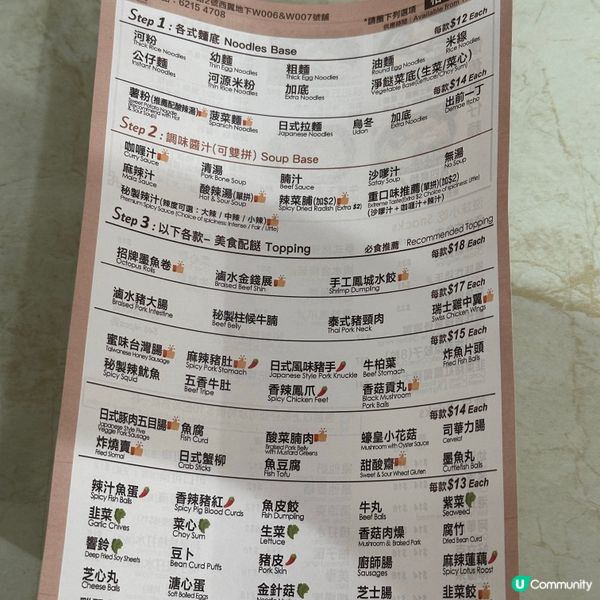 2號西翼地下W006&W007號舖
6215 4708
*請圈下列選項
供應時間 / Available from
Step 1 : 各式麵底 Noodles Base
每款$12 Each
河粉 幼麵 粗麵 油麵 米線
Thick Rice Noodles Thin Egg Noodles Thick Egg Noodles Round Egg Noodles Rice Noodles
公仔麵 河源米粉 加底 淨餸菜底(生菜/菜心)
Instant Noodles Thin Rice Noodles Extra Noodles Vegetable Base(Lettuce/Choy Sum)
每款$14 Each
薯粉(推薦配酸辣湯) 菠菜麵 日式拉麵 烏冬 加底 出前一丁
Spinach Noodles Japanese Noodles Udon Extra Noodles Demae Itcho
& Sour Soup)
Step 2 : 調味醬汁(可雙拼) Soup Base
咖喱汁 清湯 腩汁 沙嗲汁 無湯
Curry Sauce Pork Bone Soup Beef Sauce Satay Soup No Soup
麻辣汁 酸辣湯(單拼) 辣菜脯(加$2) 重口味推薦(單拼)(加$2)
Mala Sauce Hot & Sour Soup Spicy Dried Radish (Extra $2) Extreme Taste(Extra $2)
秘製辣汁(辣度可選：大辣 / 中辣 / 小辣) (沙嗲汁+咖喱汁+辣汁)
Premium Spicy Sauce (Choice of spiciness: Intense / Fair / Little)
Step 3 : 以下各款- 美食配餸 Topping
必食推薦 Recommended Topping
每款$18 Each
招牌墨魚卷 滷水金錢展 手工鳳城水餃
Octopus Rolls Braised Beef Shin Shrimp Dumpling
每款$17 Each
滷水豬大腸 秘製柱候牛腩 泰式豬頸肉 瑞士雞中翼
Braised Pork Intestine Beef Belly Thai Pork Neck Swiss Chicken Wings
每款$15 Each
蜜味台灣腸 麻辣豬肚 日式風味豬手 牛柏葉 炸魚片頭
Taiwanese Honey Sausage Spicy Pork Stomach Japanese Style Pork Knuckle Beef Stomach Fried Fish Balls
秘製辣魷魚 五香牛肚 香辣鳳爪 香菇貢丸
Spicy Squid Beef Tripe Spicy Chicken Feet Black Mushroom
Pork Balls
每款$14 Each
日式豚肉五目腸 魚腐 酸菜腩肉 蠔皇小花菇 司華力腸
Japanese Style Five Fish Curd Braised Pork Belly Mushroom with Oyster Sauce Cervelat
Veggie Pork Sausage with Mustard Greens
炸燒賣 日式蟹柳 魚豆腐 甜酸齋 墨魚丸
Fried Siomai Crab Sticks Fish Tofu Sweet & Sour Wheat Gluten Cuttlefish Balls
每款$13 Each
辣汁魚蛋 香辣豬紅 魚皮餃 牛丸 紫菜
Spicy Fish Balls Spicy Pig Blood Curds Fish Dumpling Beef Balls Seaweed
韭菜 菜心 生菜 香菇肉燥 腐竹
Garlic Chives Choy Sum Lettuce Mushroom & Braised Pork Dried Bean Curd
響鈴 豆卜 豬皮 廚師腸 麻辣蓮藕
Deep Fried Soy Sheets Bean Curd Puffs Pork Skin Sausages Spicy Lotus Roast
芝心丸 溏心蛋 金針菇 芝士腸 韭菜餃
Cheese Balls Soft Boiled Eggs
U Community